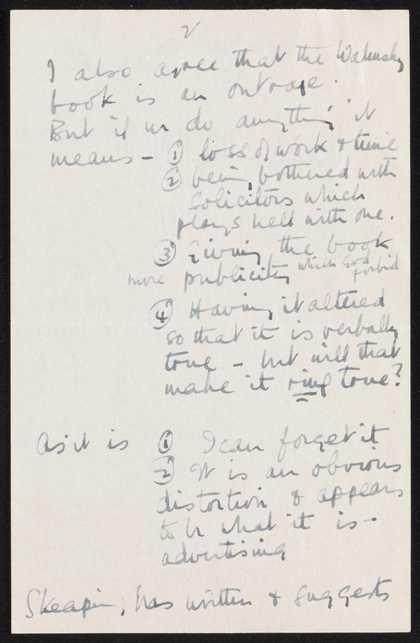 2
I also agree that the Walmsley
book is an outrage.
But if we do anything it
means - ① loss of work & time
② being bothered with
solicitors which
plays hell with one.
③ Giving the book
more publicity which God forbid
④ Having it altered
so that it is verbally
true - but will that
make it ring true?
As it is ① I can forget it
② It is an obvious
distortion & appears
to be what it is -
advertising
Skeaping, has written & suggests